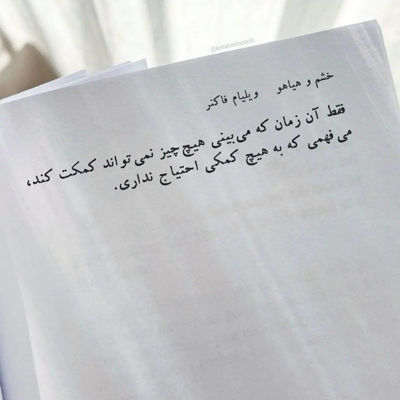 خشم و هیاهو ویلیام فاکنر
فقط آن زمان که می‌بینی هیچ‌چیز نمی‌تواند کمکت کند،
می‌فهمی که به هیچ کمکی احتیاج نداری.